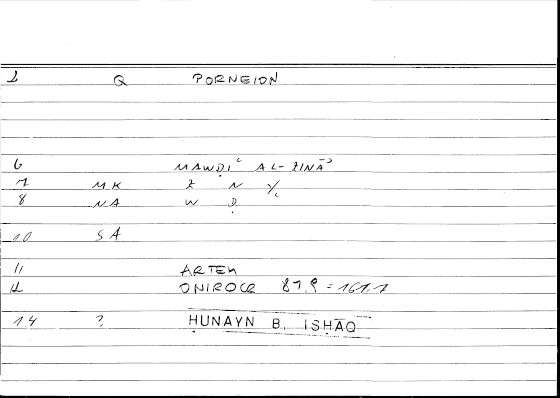 2 Q PORNEION
6 MAWḌIʿ AL-ZINĀʾ
7 MK Z N Y
8 NA W Ḍ
10 SA
11 ARTEM
12 ONIROCR 87,9 = 161,7
14 ? ḤUNAYN B. ISḤĀQ